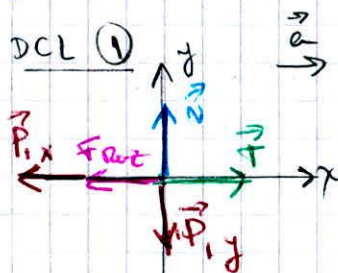 DCL ① y a⃗
P⃗₁,x F Roz N⃗ T⃗ x
P⃗₁,y